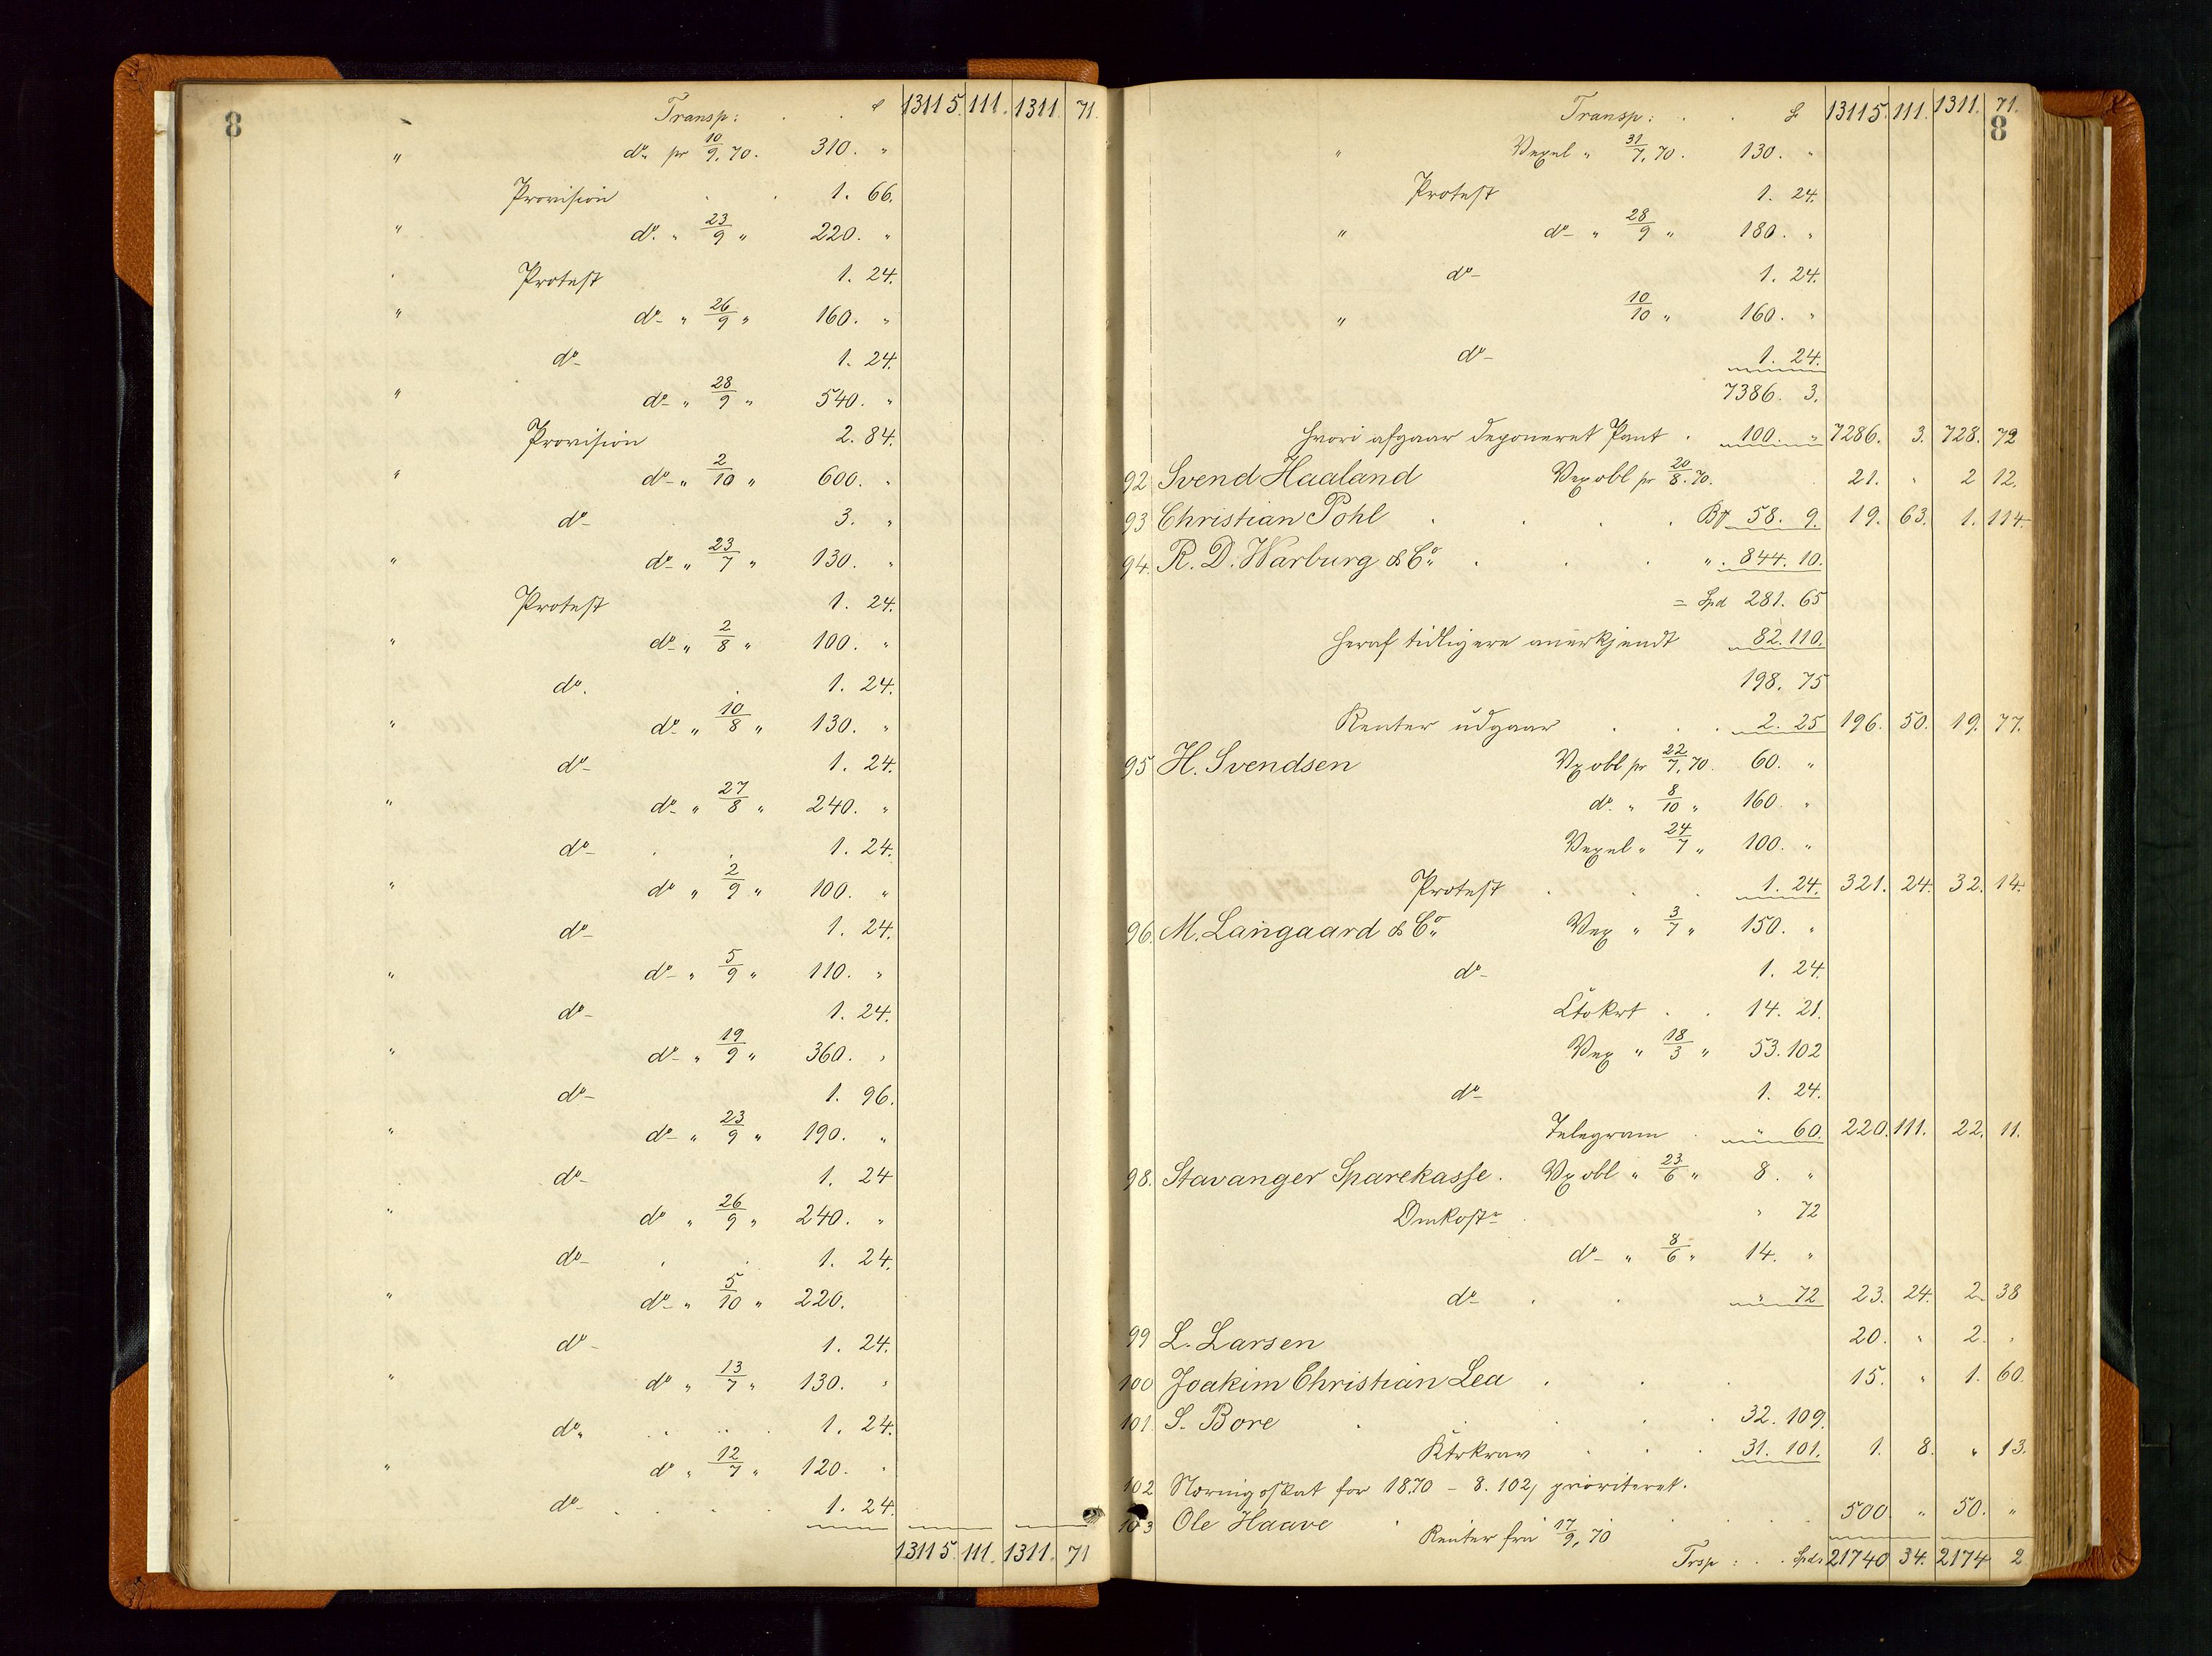 8
Transp: . . 13115. 111. 1311. 71.
" do. pr 10/9. 70. 310. "
Provision . . 1. 66.
" do. " 23/9 " 220. "
Protest 1. 24.
" do- " 26/9 " 160. "
do- 1. 24.
" do- " 28/9 " 540. "
Provision 2. 84.
" do- " 2/10 " 600. "
do- 3. "
" do- " 23/7 " 130. "
Protest 1. 24.
" do- " 2/8 " 100. "
do. 1. 24.
" do- " 10/8 " 130. "
do- 1. 24.
" do- " 27/8 " 240. "
do- 1. 24.
" do " 2/9 " 100. "
do- 1. 24.
" do- " 5/9 " 110. "
do- 1. 24.
" do- " 19/9 " 360. "
do- 1. 96.
" do- " 23/9 " 190. "
do- 1. 24
" do " 26/9 " 240. "
do- 1. 24.
" do- " 5/10 " 220.
do- 1. 24.
" do " 13/7 " 130. "
do. 1. 24.
" do " 12/7 " 120. "
do- 1. 24.
13115. 111. 1311. 71
8
Transp: . . 13115. 111. 1311. 71.
" Vexel " 31/7. 70. 130. "
Protest 1. 24.
" do- " 28/9 " 180. "
do- 1. 24.
" 10/10 " 160. "
do- 1. 24.
7386. 3.
hvori afgaar deponeret Pant . 100. " 7286. 3. 728. 72
92 Svend Haaland Vexobl pr 20/8. 70. 21. " 2 12.
93 Christian Pohl . . . . 58. 9. 19. 63. 1. 114.
94. R. D. Warburg & Co. . . . " 844. 10.
= Spd 281. 65
heraf tidligere anerkjendt 82. 110.
198. 75
Renter udgaar 2. 25 196. 50. 19. 77.
95 H. Svendsen Vxobl pr 22/7. 70. 60. "
do. " 8/10 " 160. "
Vexel " 24/7 " 100. "
Protest . . . 1. 24. 321. 24. 32. 14.
96. M. Langaard & Co. Vex " 3/7 " 150. "
do- 1. 24.
14. 21.
Vex " 18/3 " 53. 102
do- 1. 24.
Telegram . " 60. 220. 111. 22. 11.
98. Stavanger Sparekasse. Vxobl " 23/6 " 8. "
Omkostr " 72
do- " 8/6 " 14. "
do- . . " 72 23. 24. 2. 38
99 L. Larsen 20. " 2. "
100 Joakim Christian Lea . . . 15. " 1. 60.
101. S. Bore . . . . 32. 109.
31. 101. 1. 8. " 13.
102 Næringsskat for 1870 - 8. 102, prioriteret.
103 Ole Haave . Renter fra 17/9. 70 500. " 50. "
Trsp: . . Spdr 21740 34. 2174 2